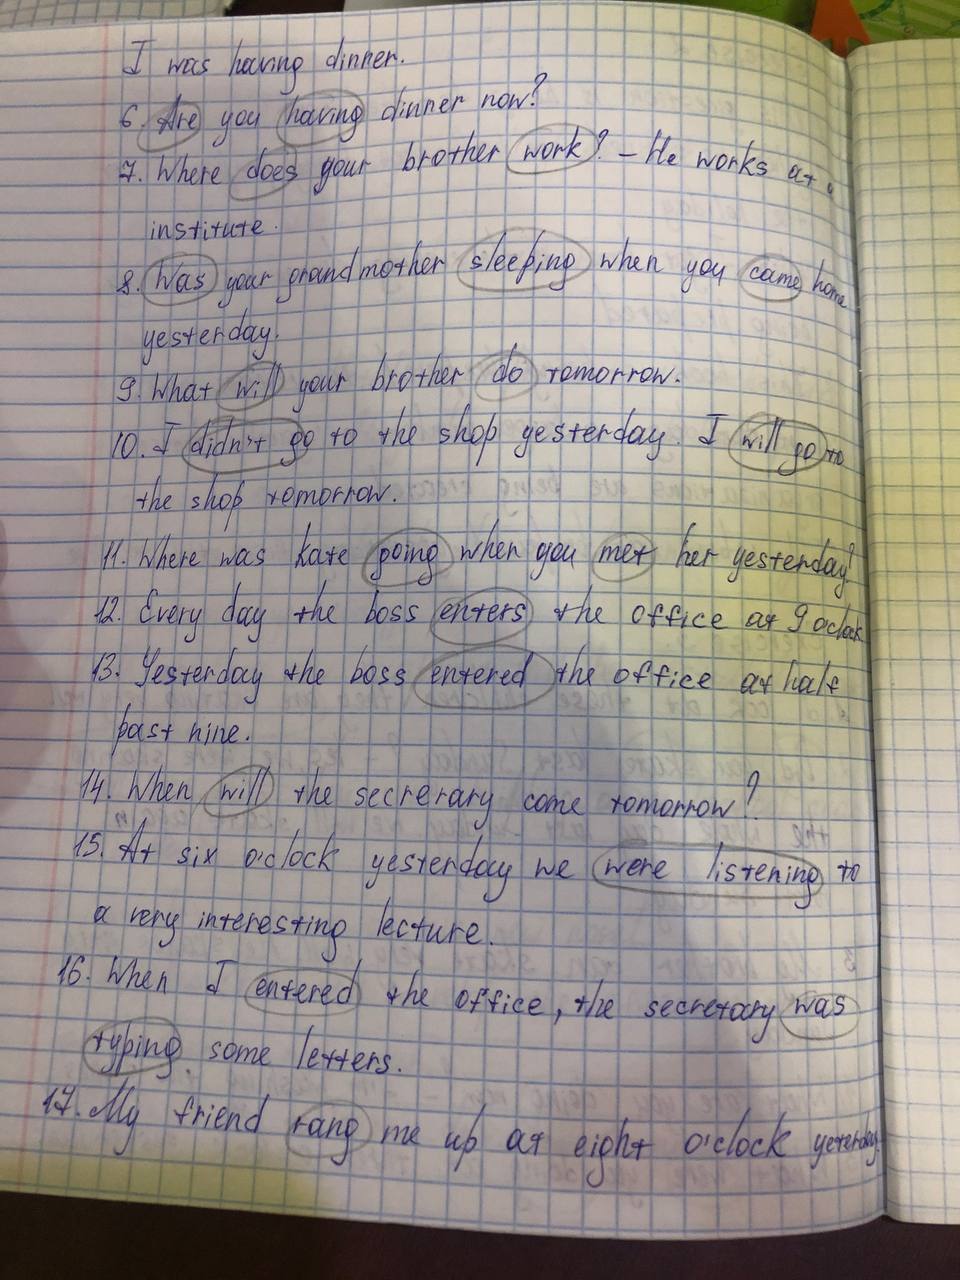 I was having dinner.
6. Are you having dinner now?
7. Where does your brother work? – He works at
institute.
8. Was your grandmother sleeping when you came home
yesterday.
9. What will your brother do tomorrow.
10. I didn't go to the shop yesterday. I will go to
the shop tomorrow.
11. Where was Kate going when you met her yesterday?
12. Every day the boss enters the office at 9 oclock
13. Yesterday the boss entered the office at half
past nine.
14. When will the secrerary come tomorrow?
15. At six o'clock yesterday we were listening to
a very interesting lecture.
16. When I entered the office, the secretary was
typing some letters.
17. My friend rang me up at eight o'clock yeterday.